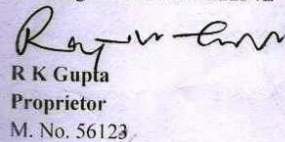 R K Gupta
Proprietor
M. No. 56123